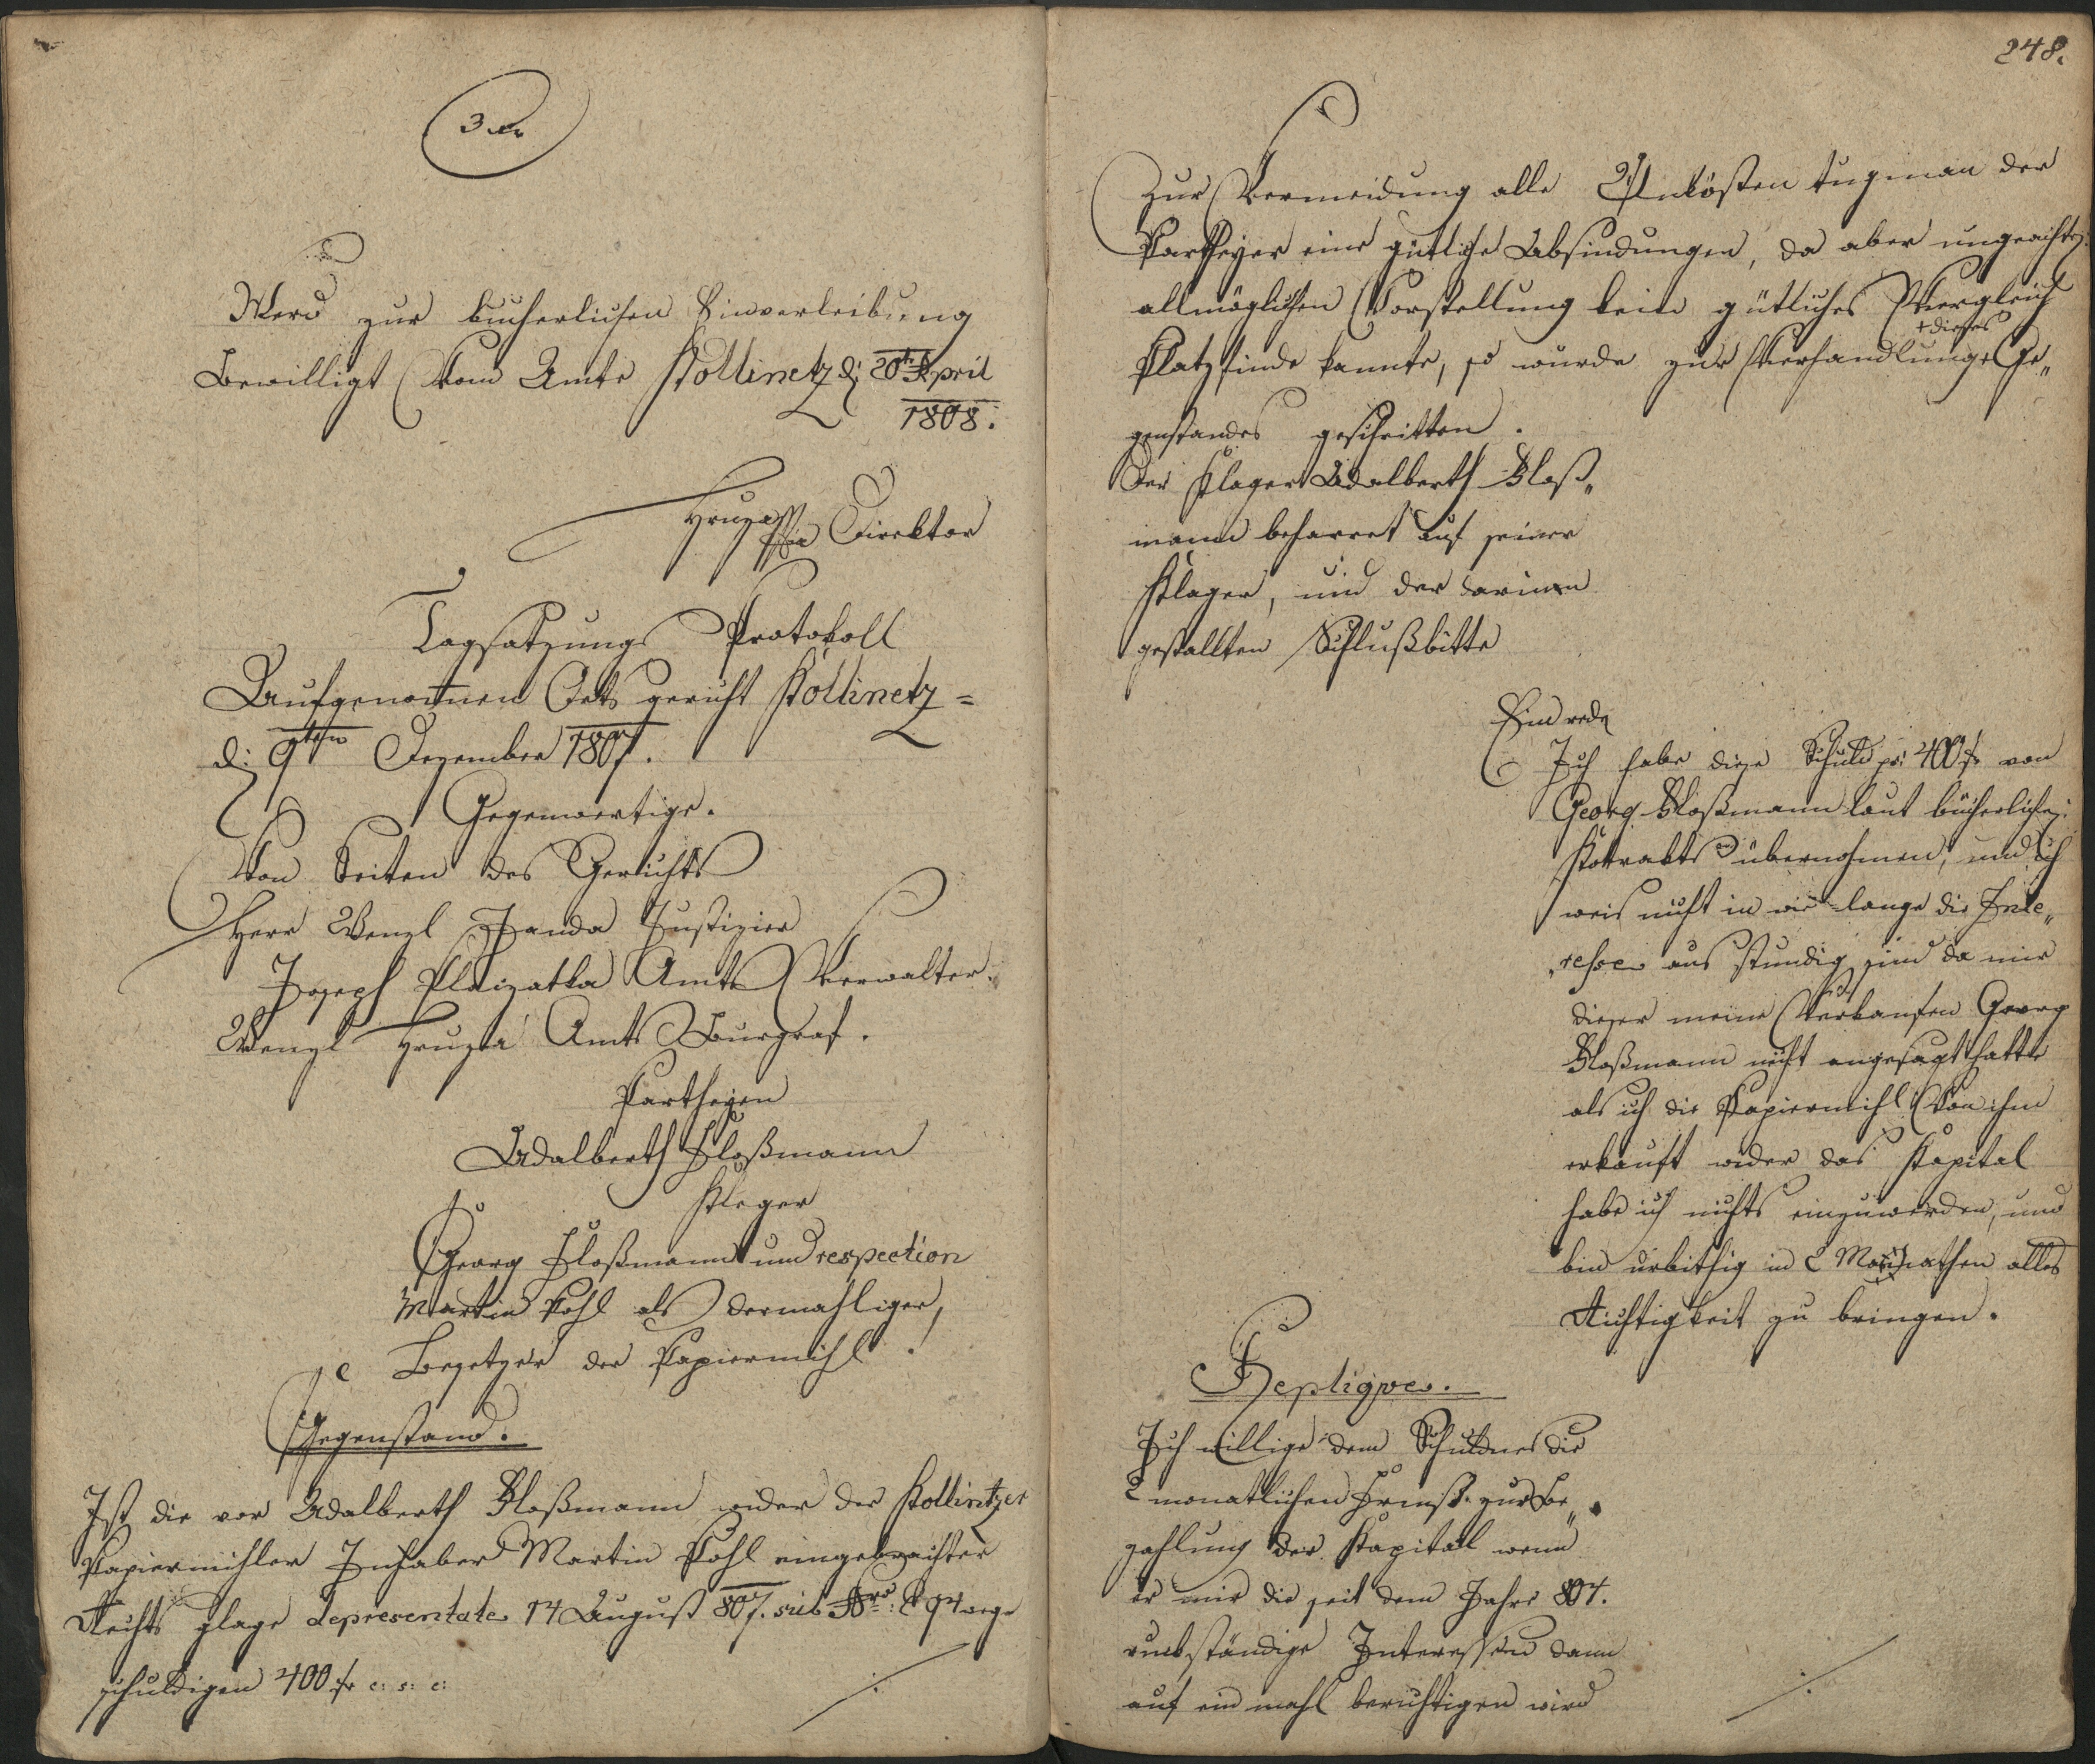 3 xr
Werd zur bucherlichen Einverleibung
Bewilligt Vom Amte Kollinetz d: 20te April
1808.
Hruza Direktor
Tagsatzungs Protokoll
Aufgenommen Orts gericht Kollinetz =
d: 9ten Dezember 1807.
Gegenwertige.
Von Seiten des Gerichts
Herr Wenzl Janda Justizier
Joseph Amts Verwalter.
Wenzl Hruza Amts Burgraf.
Partheyen
Adalberth Floßmann
Kleger
Georg Floßmann und respection
Martin Pohl als dermahliger,
Besetzer der Papiermihl.
Gegenstand.
Ist die vor Adalberth Floßmann wider der Kollintzer
Papiermihler Inhaber Martin Pohl eingebrachter
Rechts glage depresentate 14 August 807. sub Nro: 94 wege
schuldigen 400 f c: s: c:
./.
248.
Zur Vermeidung alle Unkösten tug man der
Partheyer eine gütliche Abfindungen, da aber ungeachtz:
allmöglichen Vorstellung kein gütliches Vergleich
+ dieses
Platz finde kannte, so wurde zur Verhandlung + Ge„
genstandes geschritten.
Der Klager Adalberth Floß„
mann beharret auf seiner
Klager, und der darinen
gestallten Schlußbitte
Einrede
Ich habe diese Schuld pr: 400 f von
Georg Floßmann laut bücherlichz:
Kontrakts übernohmen, und ich
weis nicht in wie lange die Inte„
„resse aus stendig sind da mir
dieser meine Verkaufen Georg
Floßmann nicht angesagt hatte
als ich die Papiermihl Von ihm
erkauft wider das Kapital
habe ich nichts einzuwenden, und
bin urbithig in 2 Monathen alles
Richtigkeit zu bringen.
Repliques.
Ich willige dem Schuldner die
2 monatlichen zur Be„
zahlung der Kapital wenn
er mir die seit dem Jahre 804.
rückständige Interessen dann
auf ein mahl berichtigen wird
./.